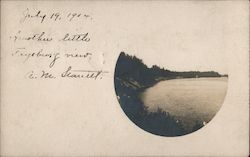 July 19, 1904.
Another little
Fryeburg view,
A. M.